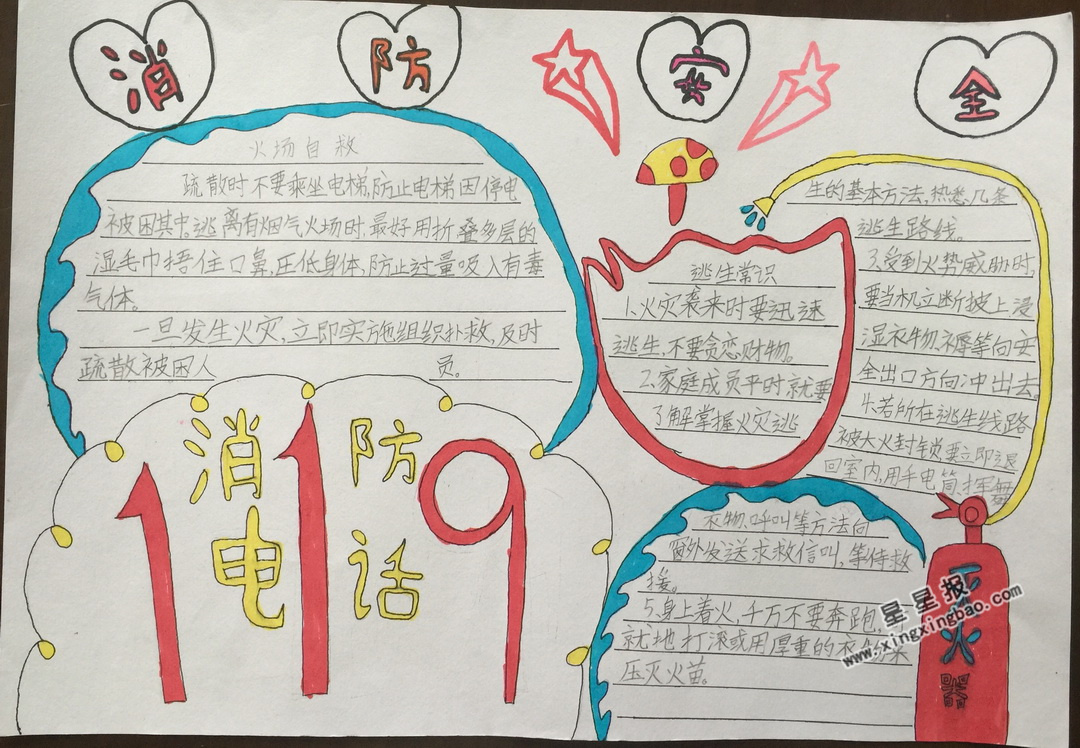 消防安全
火场自救
疏散时不要乘坐电梯,防止电梯因停电
被困其中。逃离有烟气火场时,最好用折叠多层的
湿毛巾捂住口鼻,压低身体,防止过量吸入有毒
气体。
一旦发生火灾,立即实施组织扑救,及时
疏散被困人员。
消防
电话
119
逃生常识
1.火灾袭来时要迅速
逃生,不要贪恋财物。
2.家庭成员平时就要
了解掌握火灾逃
生的基本方法,热悉几条
逃生路线。
3.受到火势威胁时,
要当机立断披上浸
湿衣物、褥等向安
全出口方向冲出去
4.若所在逃生线路
被大火封锁要立即退
回室内,用手电筒,挥舞
衣物、呼叫等方法向
窗外发送求救信叫,等待救
援。
5.身上着火,千万不要奔跑,
就地打滚或用厚重的衣物
压灭火苗。
灭火器
星星报
www.xingxingbao.com